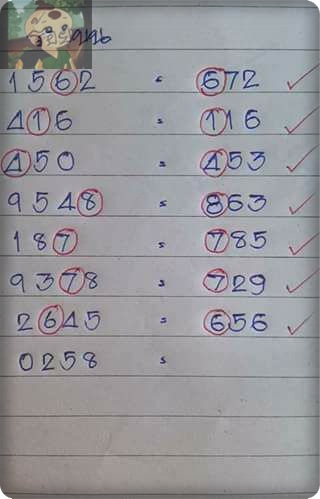 1562 = 672 ✓
416 = 116 ✓
450 = 453 ✓
9548 = 863 ✓
187 = 785 ✓
9378 = 729 ✓
2645 = 656 ✓
0258 =